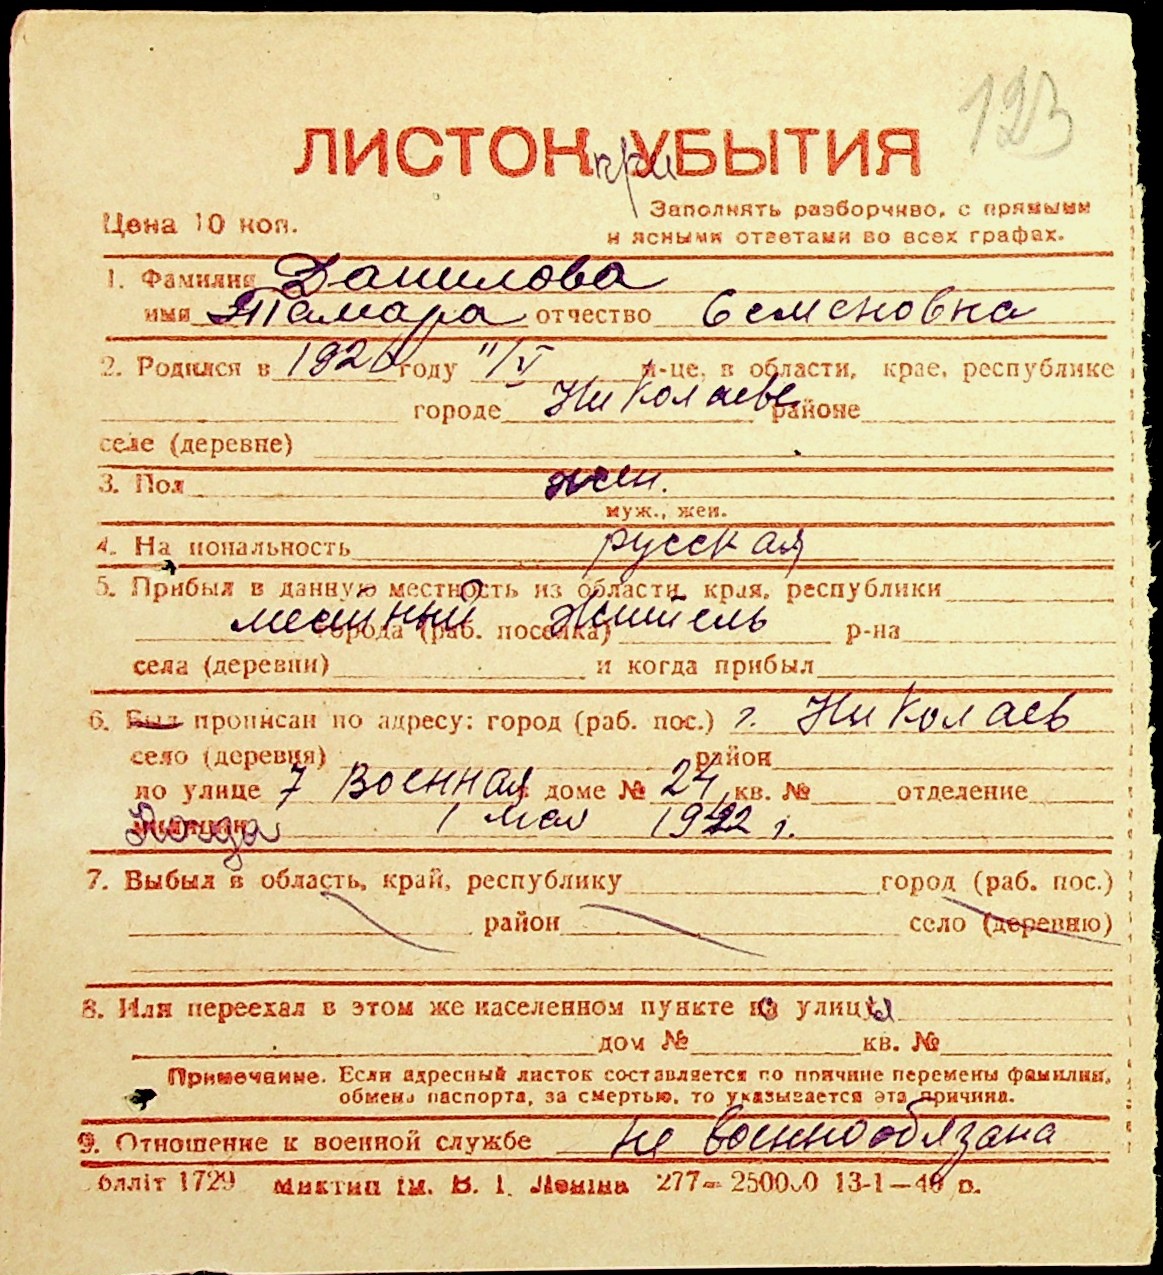 123
ЛИСТОК при УБЫТИЯ
Цена 10 коп.
Заполнять разборчиво, с прямыми
и ясными ответами во всех графах.
1. Фамилия Данилова
имя Тамара отчество Семеновна
2. Родился в 1920 году 11/V м-це, в области, крае, республике
городе Николаеве районе
селе (деревне)
3. Пол жен.
муж., жен.
4. Национальность русская
5. Прибыл в данную местность из области, края, республики
местный житель
города (раб. поселка) р-на
села (деревни) и когда прибыл
6. Был прописан по адресу: город (раб. пос.) г. Николаев
село (деревня) район
по улице 7 Военная доме № 24 кв. № отделение
милиции Когда 1 мая 1922 г.
7. Выбыл в область, край, республику город (раб. пос.)
район село (деревню)
8. Или переехал в этом же населенном пункте на улицы
дом № кв. №
Примечание. Если адресный листок составляется по причине перемены фамилии,
обмена паспорта, за смертью, то указывается эта причина.
9. Отношение к военной службе не военнообязана
блліт 1729 ім. В. І. Леніна 277— 250000 13-1—40 р.